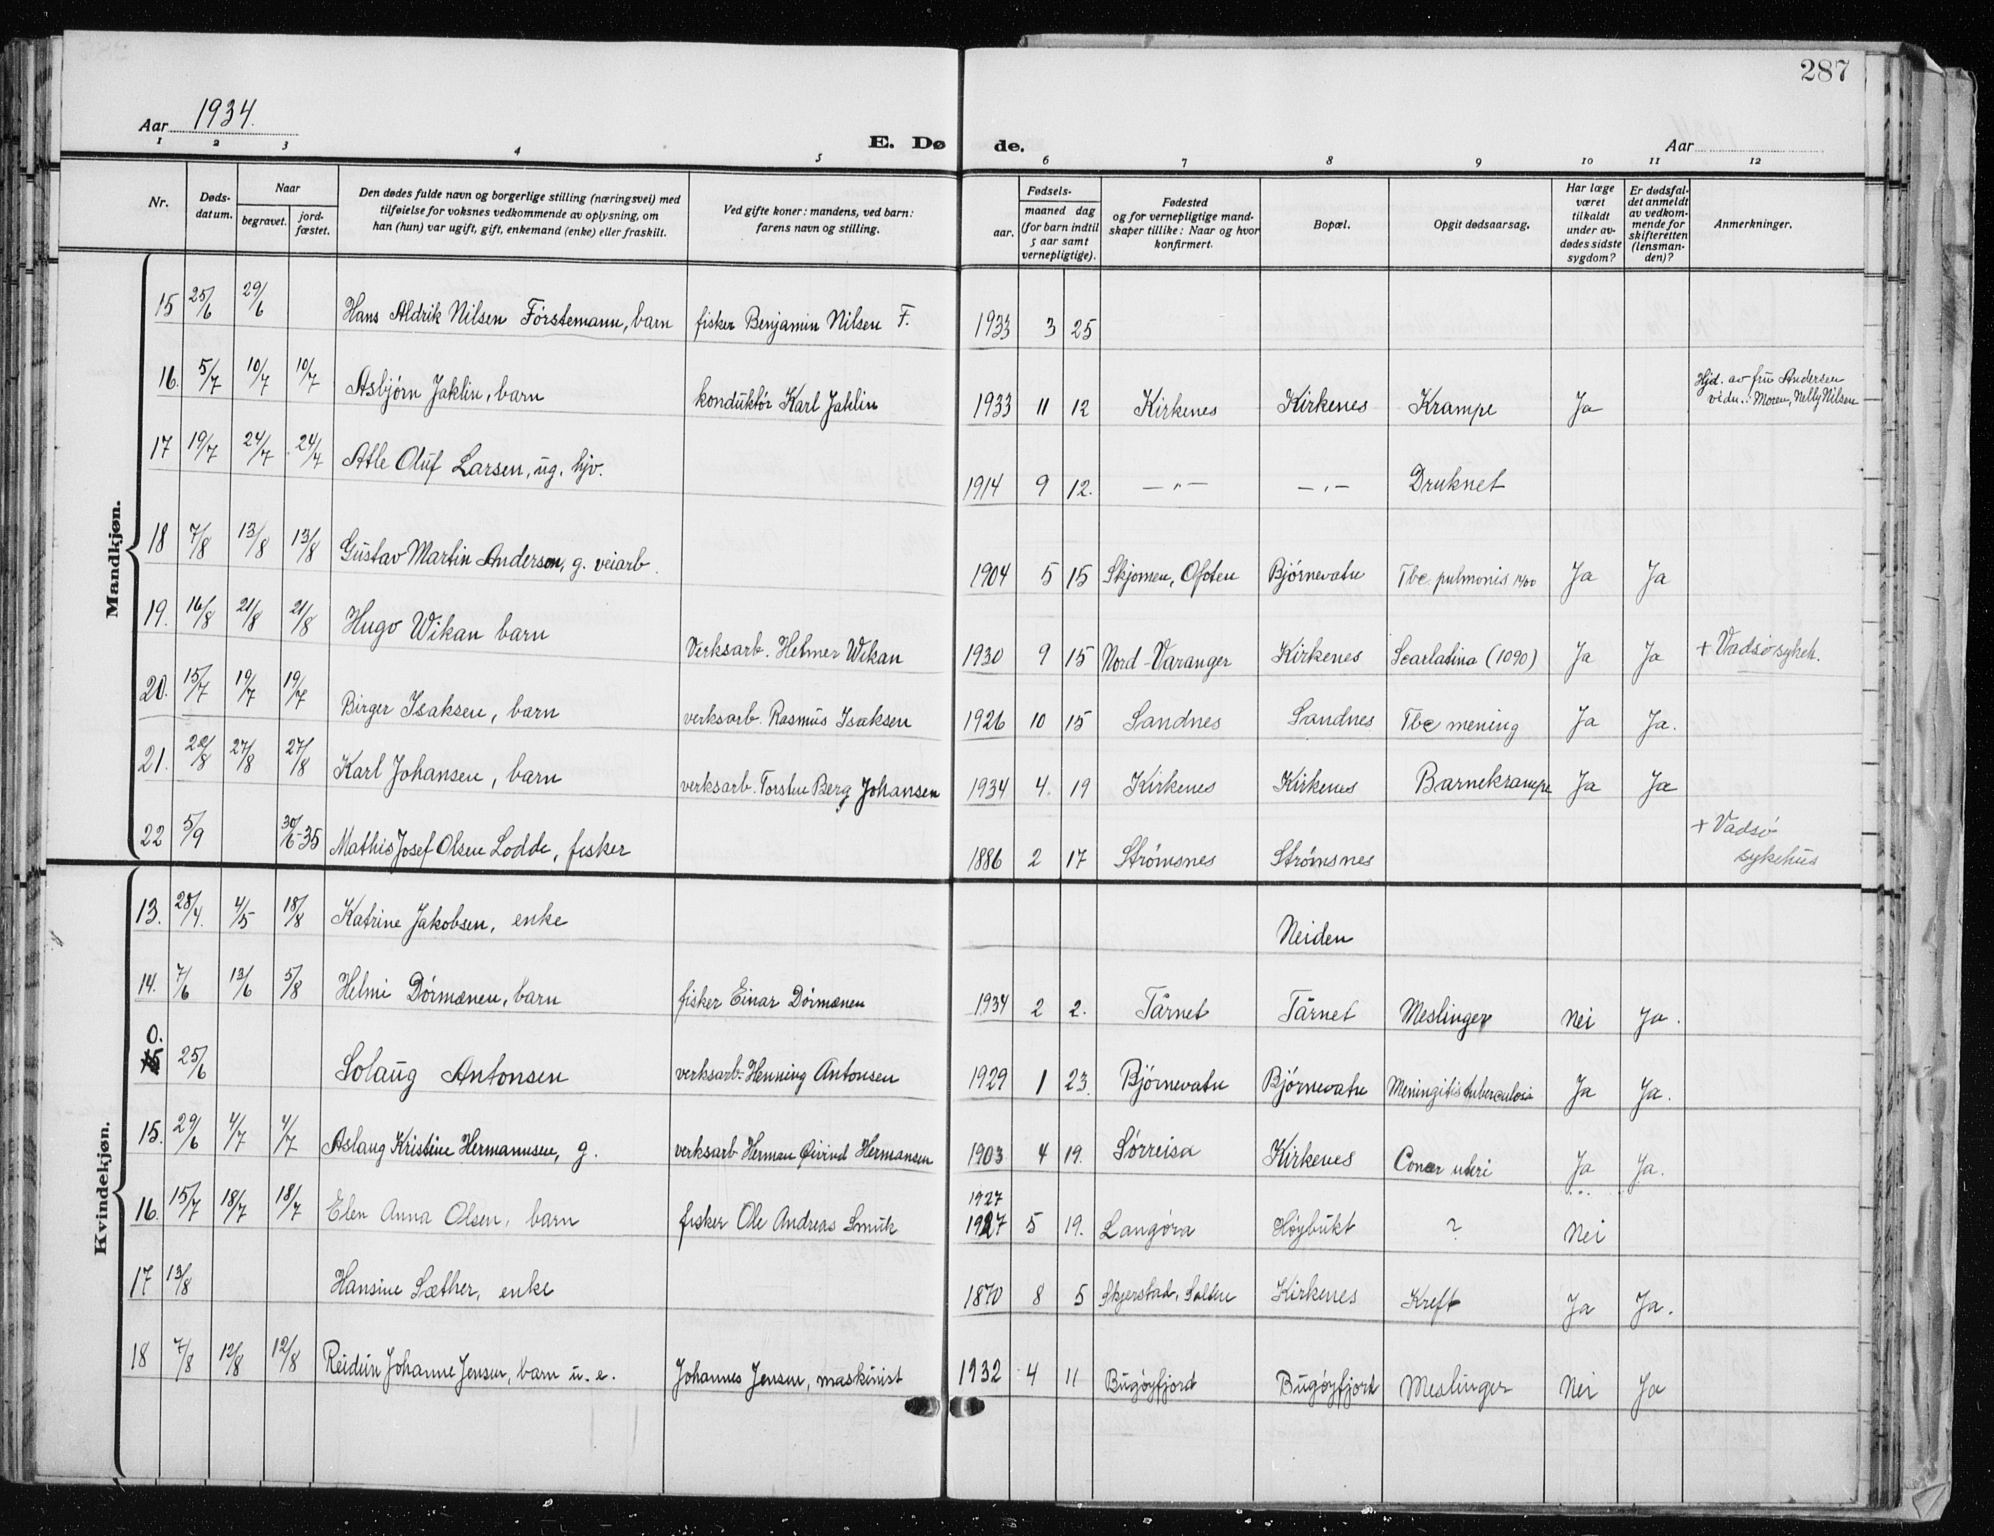 287
Aar 1934.
E. Dø de.
Aar
1 2 3 4 5 6 7 8 9 10 11 12
Nr.
Døds-
datum.
Naar
begravet.
jord-
fæstet.
Den dødes fulde navn og borgerlige stilling (næringsvei) med
tilføielse for voksnes vedkommende av oplysning, om
han (hun) var ugift, gift, enkemand (enke) eller fraskilt.
Ved gifte koner: mandens, ved barn:
farens navn og stilling.
Fødsels-
aar.
maaned dag
(for barn indtil
5 aar samt
vernepligtige).
Fødested
og for vernepligtige mand-
skaper tillike: Naar og hvor
konfirmert.
Bopæl.
Opgit dødsaarsag.
Har læge
været
tilkaldt
under av-
dødes sidste
sygdom?
Er dødsfal-
det anmeldt
av vedkom-
mende for
skifteretten
(lensman-
den)?
Anmerkninger.
Mandkjøn.
15 25/6 29/6 Hans Aldrik Nilsen Förstemann, barn fisker Benjamin Nilsen F. 1933 3 25
16. 5/7 10/7 10/7 Asbjørn Jaklin, barn konduktör Karl Jaklin 1933 11 12 Kirkenes Kirkenes Krampe Ja Hjd. av fru Andersen
vidn.: Moren, Nelly Nilsen
17 19/7 24/7 24/7 Atle Oluf Larsen, ug. hjv. 1914 9 12. —"— —"— Druknet
18 7/8 13/8 13/8 Gustav Martin Anderson, g. veiarb. 1904 5 15 Skjomen, Ofoten Bjørnevatn Tbc. pulmonis Ja Ja
19. 16/8 21/8 21/8 Hugo Wikan barn Verksarb. Helmer Wikan 1930 9 15 Nord-Varanger Kirkenes Scarlatina (1090) Ja Ja + Vadsø sykeh.
20. 15/7 19/7 19/7 Birger Isaksen, barn verksarb. Rasmus Isaksen 1926 10 15 Sandnes Sandnes Tbc mening Ja Ja.
21. 22/8 27/8 27/8 Karl Johansen, barn verksarb. Torsten Berg Johansen 1934 4. 19 Kirkenes Kirkenes Barnekrampe Ja Ja
22 5/9 30/6-35 Mathis Josef Olsen Lodde, fisker 1886 2 17 Strømsnes Strømsnes + Vadsø
sykehus
Kvindekjøn.
13. 28/4. 4/5 18/8 Katrine Jakobsen, enke Neiden
14. 7/6 13/6 5/8 Helmi Dörmænen, barn fisker Einar Dörmænen 1934 2 2. Tårnet Tårnet Meslinger Nei Ja.
0.
15 25/6 Solaug Antonsen verksarb. Henning Antonsen 1929 1 23. Bjørnevatn Bjørnevatn Meningitis tuberculosa Ja Ja.
15. 29/6 4/7 4/7 Aslaug Kristine Hermannsen, g. verksarb Herman Øivind Hermansen 1903 4 19. Sørreisa Kirkenes uteri Ja Ja.
1927
16. 15/7 18/7 18/7 Elen Anna Olsen, barn fisker Ole Andreas Smuk 1927 5 19. Langøra Høybukt ? Nei
17 13/8 Hansine Sæther, enke 1870 8 5 Skjerstad, Salten Kirkenes Kreft Ja Ja.
18 7/8 12/8 12/8 Reidun Johanne Jensen, barn u. e. Johannes Jensen, maskinist 1932 4 11 Bugøyfjord Bugøyfjord Meslinger Nei Ja